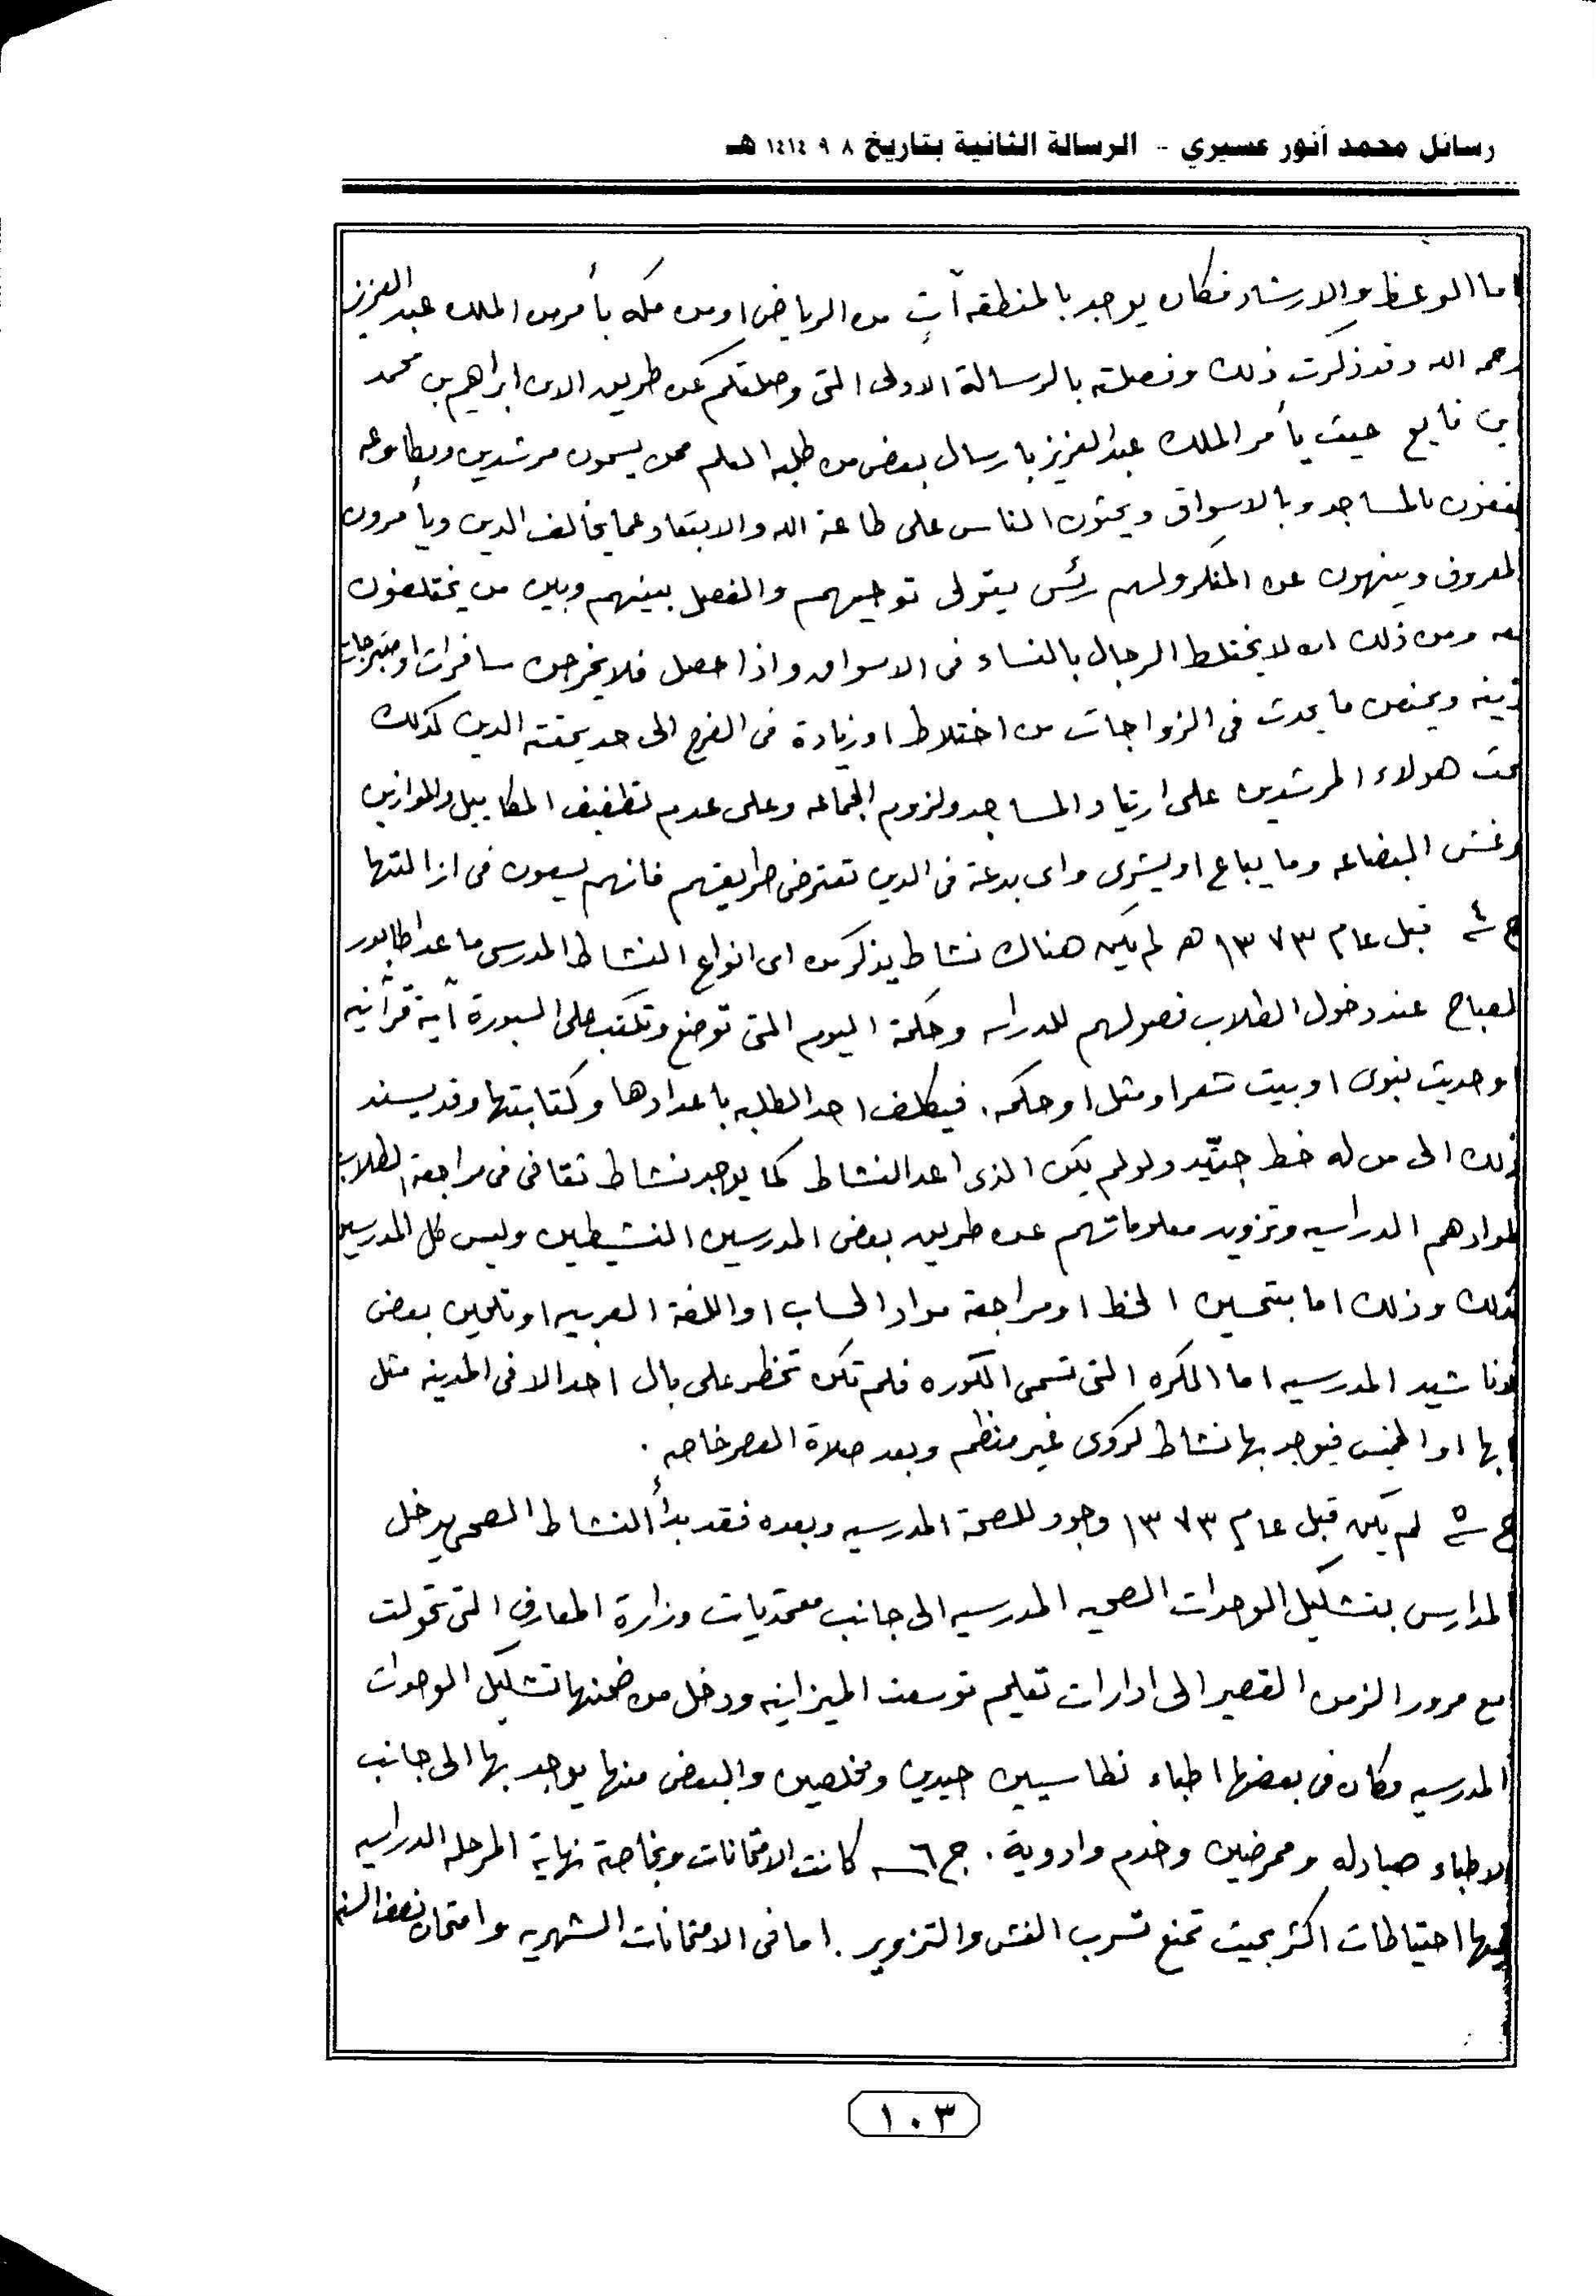 رسائل محمد أنور عسيري - الرسالة الثانية بتاريخ ٨ ٩ ١٤١٤ هـ
اما الوعظ والارشاد فكان يوجد بالمنطقه آتٍ من الرياض او من مكه بأمر من الملك عبد العزيز
رحمه الله وقد ذكرت ذلك وفصلته بالرسالة الاولى التى وصلتكم عن طريق الابن ابراهيم بن محمد
بن فايع حيث يأمر الملك عبد العزيز بارسال بعض من طلبه العلم ممن يسمون مرشدين ومطاوعه
يقفون بالمساجد وبالاسواق ويحثون الناس على طاعة الله والابتعاد عما يخالف الدين ويأمرون
المعروف وينهون عن المنكر ولهم رئس يتولى توجيههم والفصل بينهم وبين من يختلفون
معه ومن ذلك ان لا يختلط الرجال بالنساء فى الاسواق واذا حصل فلا يخرجن سافرات او متبرجات
زينه ويمنعون ما يحدث فى الزواجات من اختلاط او زيادة فى الفرح الى حد يمقته الدين كذلك
يحث هولاء المرشدين على ارتياد المساجد ولزوم الجماعه وعلى عدم تطفيف المكاييل والموازين
وغش البضاعه وما يباع او يشترى واى بدعة فى الدين تعترض طريقهم فانهم يسعون فى ازالتها
ج س٤ قبل عام ١٣٧٣ هـ لم يكن هناك نشاط يذكر من اى انواع النشاط المدرسى ما عدا طابور
الصباح عند دخول الطلاب فصولهم للدراسه وحكمة اليوم التى توضع وتكتب على السبورة آية قرآنيه
او حديث نبوى او بيت شعر او مثل او حكمه. فيكلف احد الطلبه باعدادها وكتابتها وقد يسند
ذلك الى من له خط جيّد ولو لم يكن الذى اعد النشاط كما يوجد نشاط ثقافى فى مراجعة الطلاب
لموادهم الدراسيه وتزويد معلوماتهم عن طريق بعض المدرسين النشيطين وليس كل المدرسين
كذلك وذلك اما بتحسين الخط او مراجعة مواد الحساب او اللغة العربيه او تلحين بعض
الاناشيد المدرسيه اما الكره التى تسمى الكوره فلم تكن تخطر على بال احد الا فى المدينه مثل
ابها او الخميس فيوجد بها نشاط كروى غير منظم وبعد صلاة العصر خاصه.
ج س٥ لم يكن قبل عام ١٣٧٣ وجود للصحة المدرسيه وبعده فقد بدأ النشاط الصحى يدخل
المدارس بتشكيل الوحدات الصحيه المدرسيه الى جانب معتمديات وزارة المعارف التى تحولت
مع مرور الزمن القصير الى ادارات تعليم توسعت الميزانيه ودخل من ضمنها تشكيل الوحدات
المدرسيه وكان فى بعضها اطباء نطاسيين جيدين ومخلصين والبعض منها يوجد بها الى جانب
الاطباء صيادله وممرضين وخدم وادوية. ج س٦ كانت الامتحانات وبخاصة نهاية المرحله الدراسيه
فيها احتياطات اكثر بحيث تمنع تسرب الغش والتزوير. اما فى الامتحانات الشهريه وامتحان نصف السنه
١٠٣